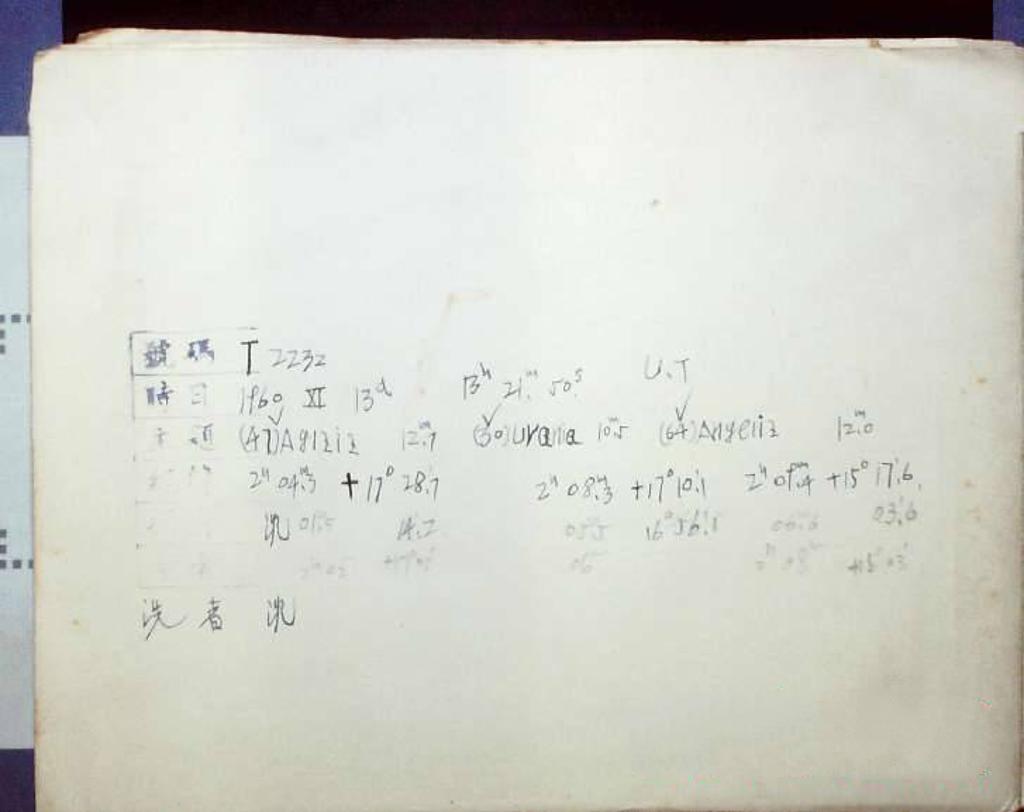 號碼 T 2232
時日 1960 XI 13d 13h 21m 50s. U.T
(47)Aglaia 12m.7 (30)Urania 10m.5 (64)Angelia 12m.0
2h 04m.3 +17° 28'.7 2h 08m.3 +17° 10'.1 +15° 17'.6
沈 01m.5 14'.2 05m.5 16° 56'.1 06m.6 03'.6
洗者 沈